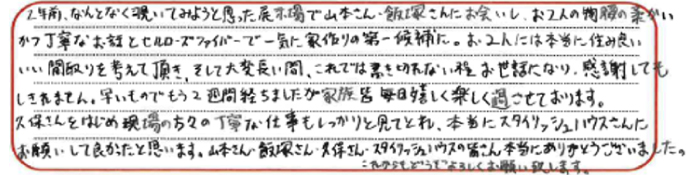 2年前、なんとなく覗いてみようと思った展示場で山本さん・飯塚さんにお会いし、お2人の物腰の柔かい
かつ丁寧なお話とセルローズファイバーで一気に家作りの第一候補に。お2人には本当に住み良い
いい間取りを考えて頂き、そして大変長い間、これでは書き切れない程お世話になり、感謝しても
しきれません。早いものでもう2週間経ちましたが家族皆毎日嬉しく楽しく過ごせております。
久保さんをはじめ現場の方々の丁寧な仕事もしっかりと見てとれ、本当にスタイリッシュハウスさんに
お願いして良かったと思います。山本さん・飯塚さん・久保さん・スタイリッシュハウスの皆さん本当にありがとうございました。
これからもどうぞよろしくお願い致します。